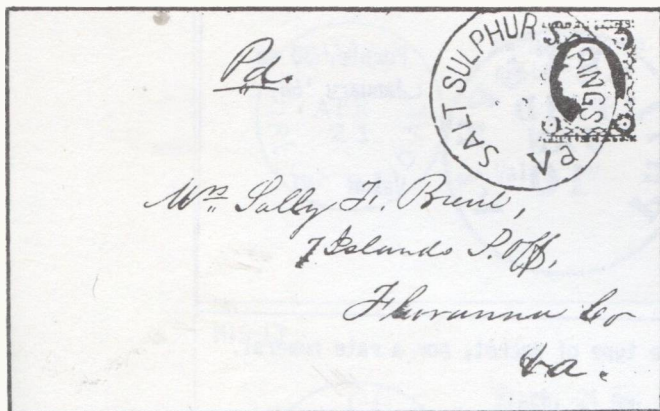 Pd.
SALT SULPHUR SPRINGS
VA
Mrs Sally F. Brent,
7 Islands P. Off,
Fluvanna Co
Va.
type of
rate